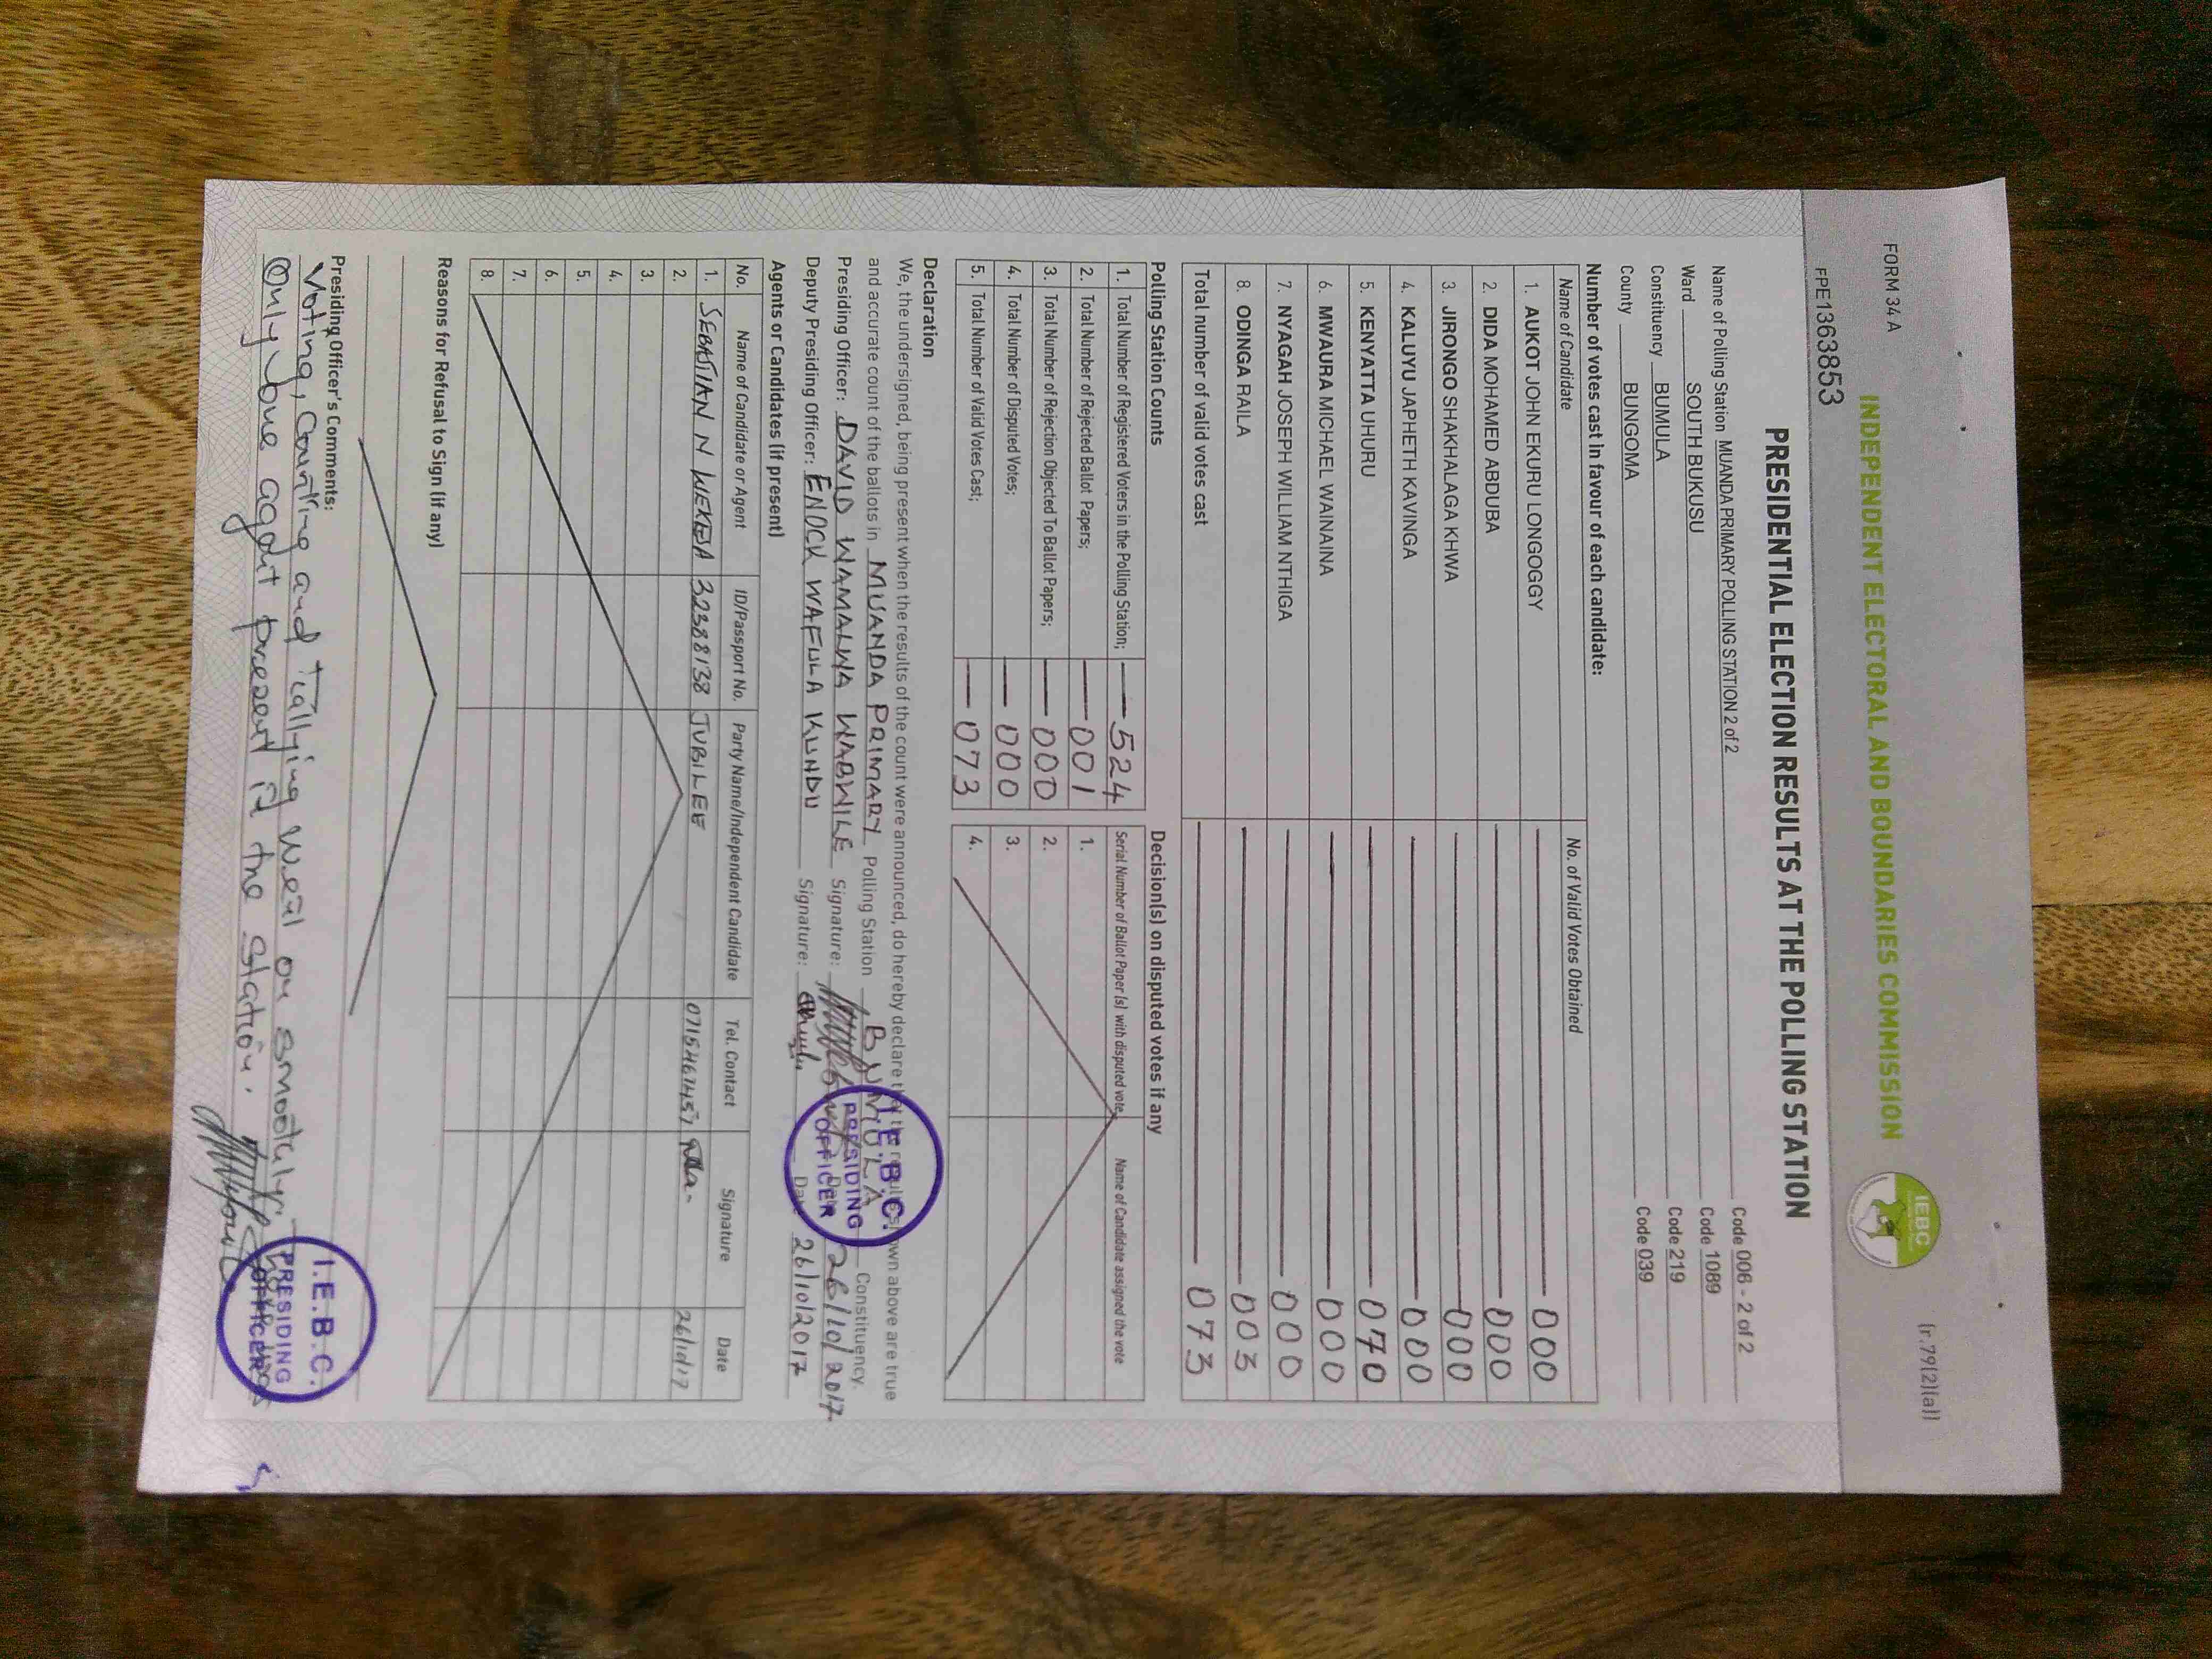 FORM 34 A
(r.79(2)(a))
INDEPENDENT ELECTORAL AND BOUNDARIES COMMISSION
IEBC
FPE1363853
PRESIDENTIAL ELECTION RESULTS AT THE POLLING STATION
Name of Polling Station MUANDA PRIMARY POLLING STATION 2 of 2 Code 006 - 2 of 2
Ward SOUTH BUKUSU Code 1089
Constituency BUMULA Code 219
County BUNGOMA Code 039
Number of votes cast in favour of each candidate:
Name of Candidate No. of Valid Votes Obtained
1. AUKOT JOHN EKURU LONGOGGY 000
2. DIDA MOHAMED ABDUBA 000
3. JIRONGO SHAKHALAGA KHWA 000
4. KALUYU JAPHETH KAVINGA 000
5. KENYATTA UHURU 070
6. MWAURA MICHAEL WAINAINA 000
7. NYAGAH JOSEPH WILLIAM NTHIGA 000
8. ODINGA RAILA 003
Total number of valid votes cast 073
Polling Station Counts
1. Total Number of Registered Voters in the Polling Station; 524
2. Total Number of Rejected Ballot Papers; 001
3. Total Number of Rejection Objected To Ballot Papers; 000
4. Total Number of Disputed Votes; 000
5. Total Number of Valid Votes Cast; 073
Decision(s) on disputed votes if any
Serial Number of Ballot Paper (s) with disputed vote Name of Candidate assigned the vote
1.
2.
3.
4.
Declaration
We, the undersigned, being present when the results of the count were announced, do hereby declare that the results shown above are true
and accurate count of the ballots in MUANDA PRIMARY Polling Station, BUMULA Constituency.
Presiding Officer: DAVID WAMALWA WABWILE Signature: Date 26/10/2017
Deputy Presiding Officer: ENOCK WAFULA KUNDU Signature: Date 26/10/2017
I.E.B.C.
PRESIDING
OFFICER
Agents or Candidates (if present)
No. Name of Candidate or Agent ID/Passport No. Party Name/Independent Candidate Tel. Contact Signature Date
1. SEBASTIAN N WEKESA 32388138 JUBILEE 26/10/17
2.
3.
4.
5.
6.
7.
8.
Reasons for Refusal to Sign (if any)
Presiding Officer's Comments:
Voting, Counting and Tallying Weal on smootaly.
Only one agent present in the station.
I.E.B.C.
PRESIDING
OFFICER